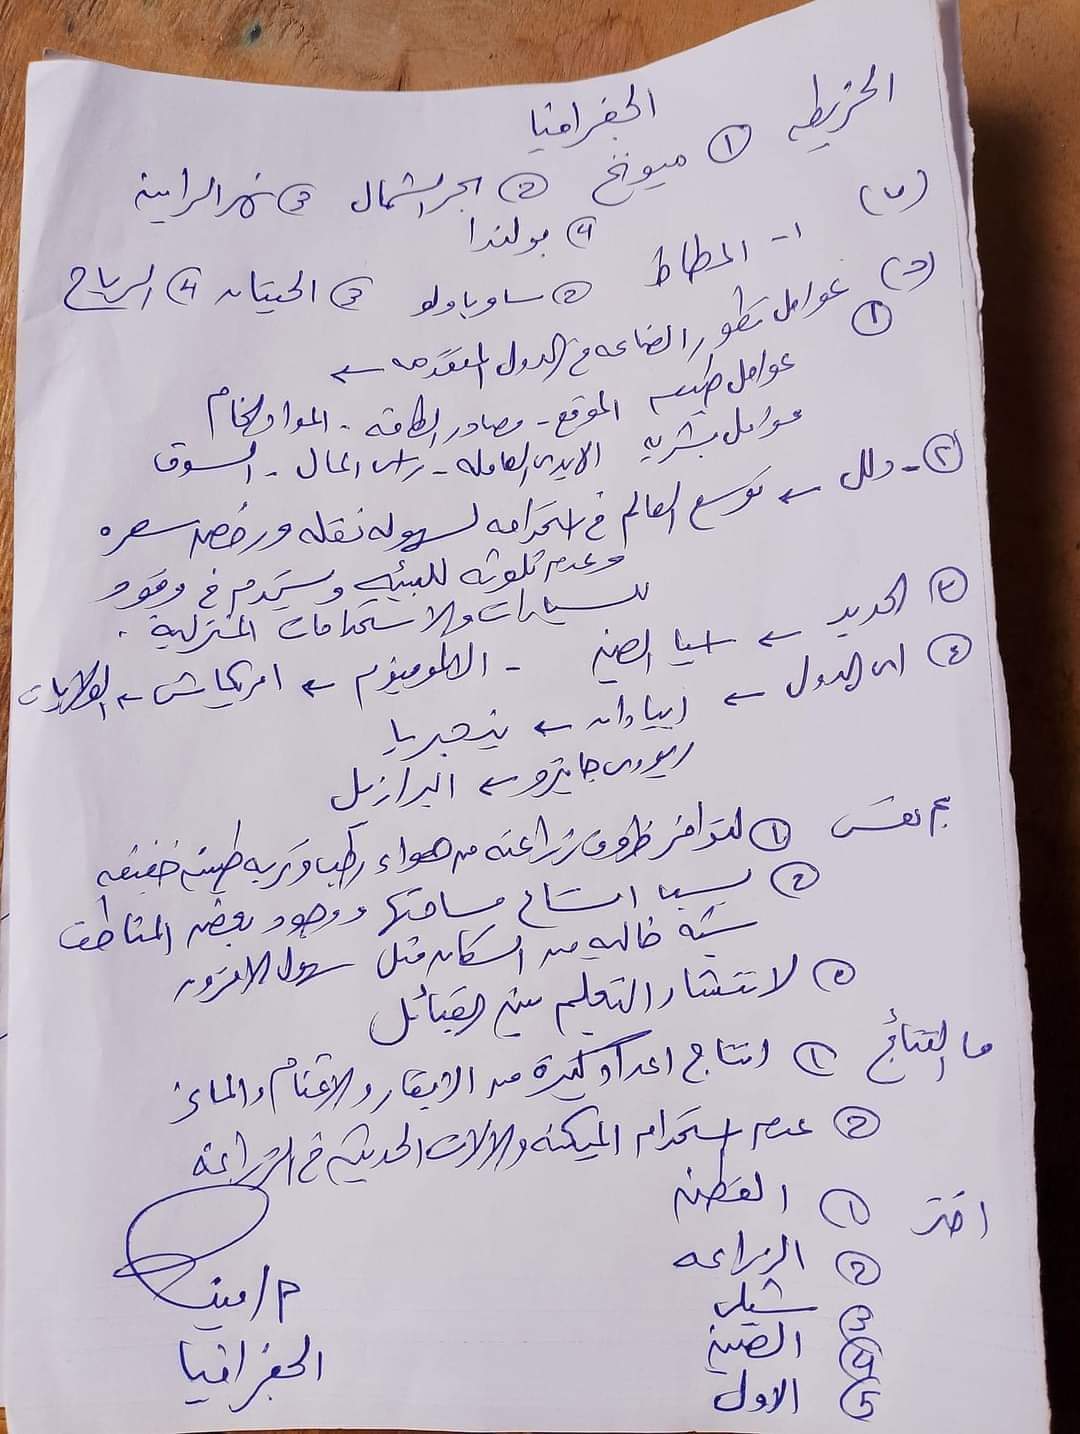 الجغرافيا
الخريطه ① ميونخ ② بحر الشمال ③ نهر الراين
④ بولندا
(ب) ١- المطاط ② ساو باولو ③ الحيتان ④ الرياح
(ج) ① عوامل تطور الصناعه في الدول المتقدمه ←
عوامل طبيعيه الموقع - مصادر الطاقه - المواد الخام
عوامل بشريه الايدى العامله - راس المال - السوق
②- دلل ← توسع العالم في استخدامه لسهوله نقله ورخص سعره
وعدم تلوثه للبيئه ويستخدم في وقود
للسيارات والاستخدامات المنزلية .
③ الحديد ← اسيا الصين - الالومنيوم ← امريكا ش ← الولايات
④ اى الدول ← ابيادان ← نيجيريا
ريودى جانيرو ← البرازيل
بم تفسر ① لتوافر ظروف زراعته من هواء رطب وتربه طينيه خفيفه
② بسبب اتساع مساحتها ووجود بعض المناطق
شبه خاليه من السكان مثل سهول الامزون
③ لانتشار التعليم بين القبائل
ما النتائج ① انتاج اعداد كبيرة من الابقار والاغنام والماعز
② عدم استخدام الميكنه والالات الحديثه في الزراعه
اختر ① القطن
② الزراعه
③ شيلى
④ الصين
⑤ الاول
م/ مينا
الجغرافيا